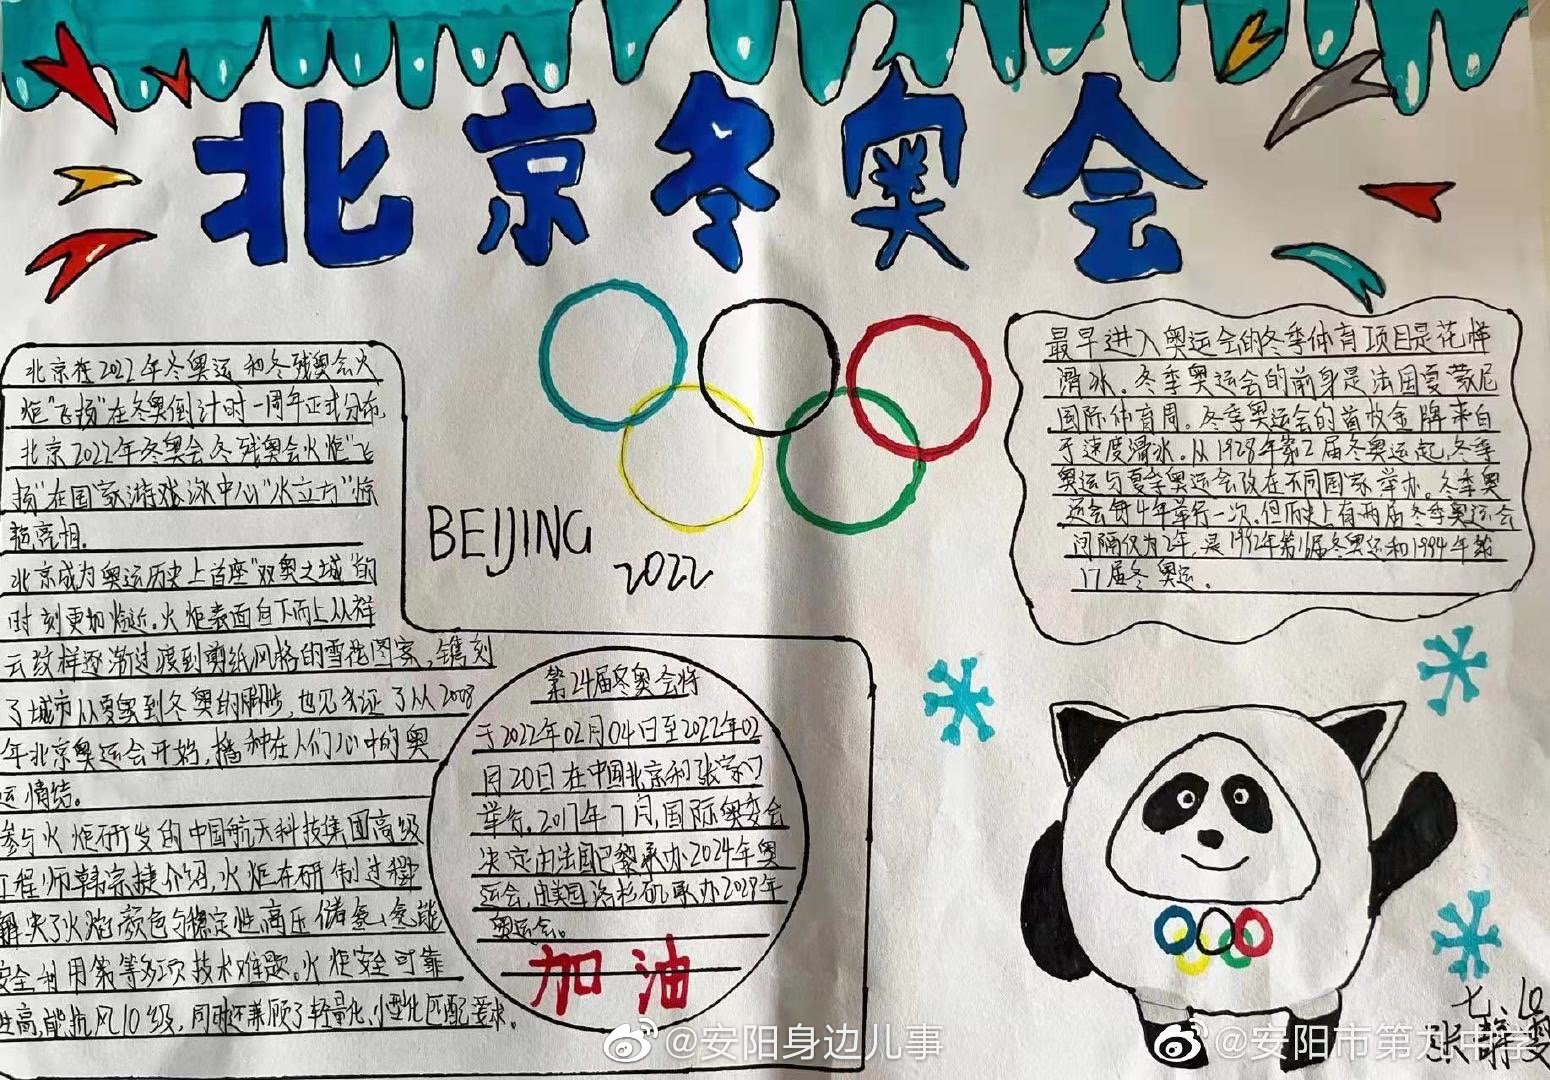 北京冬奥会
北京在2022年冬奥运和冬残奥会火
炬"飞扬"在冬奥倒计时一周年正式公布,
北京2022年冬奥会冬残奥会火炬"飞
扬"在国家游泳中心"水立方"惊
艳亮相.
北京成为奥运历史上首座"双奥之城"的
时刻更加临近。火炬表面自下而上从祥
云纹样逐渐过渡到剪纸风格的雪花图案,镌刻
了城市从夏奥到冬奥的脚步,也见证了从2008
年北京奥运会开始,播种在人们心中的奥
运情结。
参与火炬研发的中国航天科技集团高级
工程师韩宗捷介绍,火炬在研制过程
解决了火焰颜色与稳定性,高压储氢、氢能
安全利用策等多项技术难题。火炬安全可靠
性高,能抗风10级,同时还兼顾了轻量化、小型化匹配要求。
BEIJING
2022
第24届冬奥会将
于2022年02月04日至2022年02
月20日在中国北京和张家口
举行。2017年7月,国际奥委会
决定由法国巴黎承办2024年奥
运会,由美国洛杉矶承办2028年
奥运会。
加油
最早进入奥运会的冬季体育项目是花样
滑冰。冬季奥运会的前身是法国夏蒙尼
国际体育周。冬季奥运会的首枚金牌来自
于速度滑冰。从1928年第2届冬奥运起,冬季
奥运与夏季奥运会改在不同国家举办。冬季奥
运会每4年举行一次,但历史上有两届冬季奥运会
间隔仅为2年,是1992年第16届冬奥运和1994年第
17届冬奥运。
七、10
张
@安阳身边儿事
@安阳市第九中学